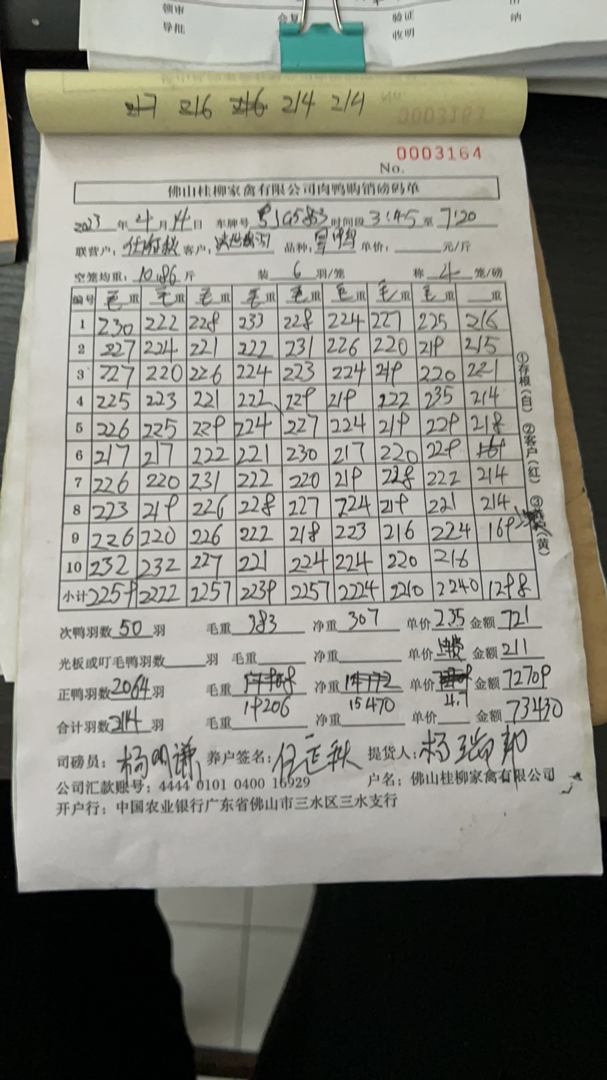 验证
收明
217 216 216 214 214
No. 0003164
佛山桂柳家禽有限公司肉鸭购销磅码单
2023 年 4 月 14 日 车牌号 时间段 3:45 至 7:20
联营户: 客户: 品种: 单价: 元/斤
空笼均重: 10.86 斤 装 6 羽/笼 称 4 笼/磅
编号 毛重 毛重 毛重 毛重 毛重 毛重 毛重 毛重 重
1 230 222 228 233 228 224 227 225 216
2 227 224 221 222 231 226 220 219 215
3 227 220 226 224 223 224 219 220 221
4 225 223 221 222 229 219 222 235 214
5 226 225 229 224 227 224 219 229 218
6 217 217 222 221 230 217 220 229
7 226 220 231 222 220 219 228 222 214
8 223 219 226 228 227 224 219 221 214
9 226 220 226 222 218 223 216 224 169
10 232 232 227 221 224 224 220 216
小计 2259 2222 2257 2239 2257 2224 2210 2240 1298
①存根(白) ②客户(红) ③(黄)
次鸭羽数 50 羽 毛重 383 净重 307 单价 2.35 金额 721
光板或叮毛鸭羽数 羽 毛重 净重 单价 金额 211
正鸭羽数 2064 羽 毛重 净重 单价 金额 72709
19206 15470 4.7
合计羽数 2114 羽 毛重 净重 单价 金额 73430
司磅员: 杨明谦 养户签名: 任正秋 提货人: 杨瑞邦
公司汇款账号: 4444 0101 0400 16929 户名: 佛山桂柳家禽有限公司
开户行: 中国农业银行广东省佛山市三水区三水支行